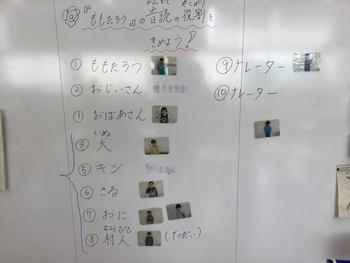 『ももたろう』の音読の役割を
きめよう!
① ももたろう
② おじいさん
③ おばあさん
いぬ
④ 犬
⑤ キジ
⑥ さる
⑦ おに
むらびと
⑧ 村人 (てつだい)
⑨ ナレーター
⑩ ナレーター